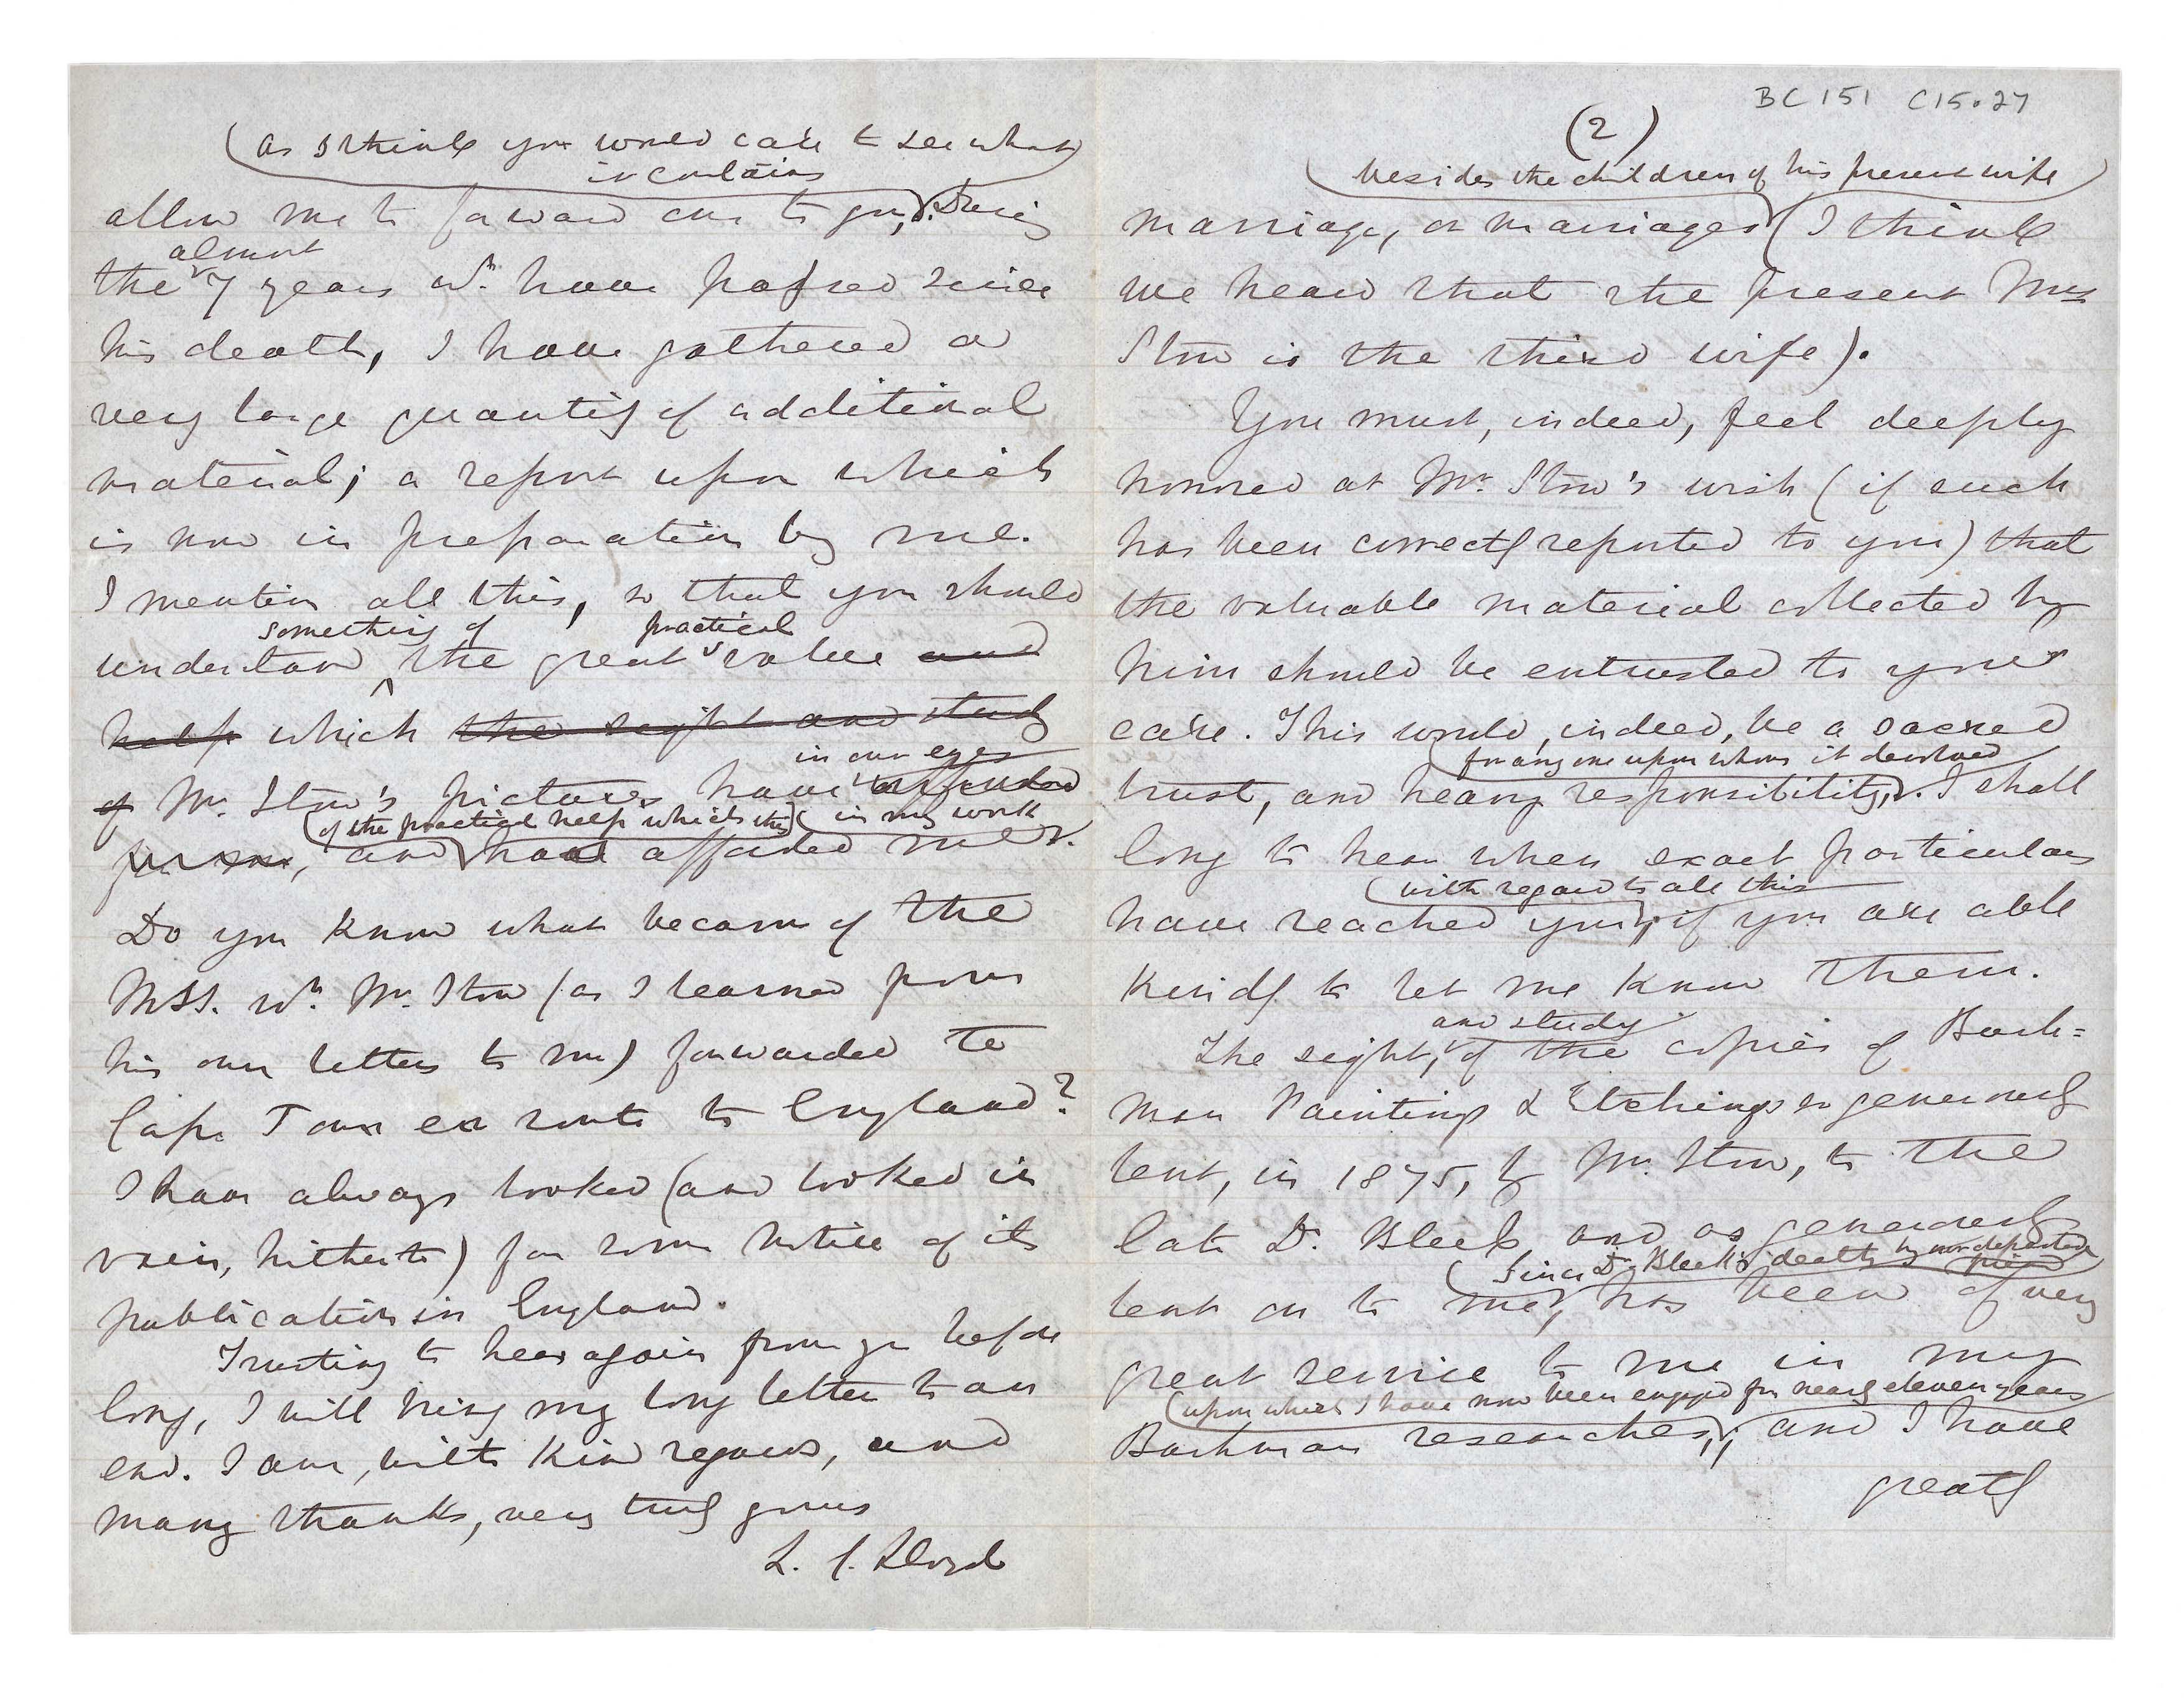 (as I think you would care to see what
it contains
allow me to forward one to you,). During
almost
the 7 years wh. have passed since
his death, I have gathered a
very large quantity of additional
material; a report upon which
is now in preparation by me.
I mention all this, so that you should
something of practical
understand the great value and
help which the sight and study
in our eyes
of Mr. Stow's pictures have afforded
(of the practical help which they) (in my work
for me, and have afforded me).
Do you know what became of the
MSS. wh. Mr. Stow (as I learned from
his own letters to me) forwarded to
Cape Town en route to England?
I have always looked (and looked in
vain, hitherto) for some notice of its
publication in England.
Trusting to hear again from you before
long, I will bring my long letter to an
end. I am, with kind regards, and
many thanks, very truly yours
L. C. Lloyd
BC 151 C15.27
(2)
(besides the children of his present wife)
marriage, or marriages (I think
we heard that the present Mrs
Stow is the third wife).
You must, indeed, feel deeply
honored at Mr. Stow's wish (if such
has been correctly reported to you) that
the valuable material collected by
him should be entrusted to your
care. This would, indeed, be a sacred
(for any one upon whom it devolved
trust, and heavy responsibility,). I shall
long to hear when exact particulars
(with regard to all this
have reached you); if you are able
kindly to let me know them.
and study
The sight, of the copies of Bush=
man Paintings & Etchings so generously
lent, in 1875, by Mr. Stow, to the
late Dr. Bleek and as generously
(since Dr. Bleek's death by our departed
lent on to me), has been of very
great service to me in my
(upon which I have now been engaged for nearly eleven years
Bushman researches,); and I have
greatly